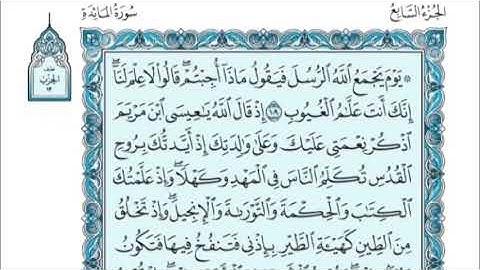 الجزء السابع
سورة المائدة
نصف
الحزب
۞ يَوْمَ يَجْمَعُ ٱللَّهُ ٱلرُّسُلَ فَيَقُولُ مَاذَآ أُجِبْتُمْ قَالُوا۟ لَا عِلْمَ لَنَآ
إِنَّكَ أَنتَ عَلَّٰمُ ٱلْغُيُوبِ ١٠٩ إِذْ قَالَ ٱللَّهُ يَٰعِيسَى ٱبْنَ مَرْيَمَ
ٱذْكُرْ نِعْمَتِى عَلَيْكَ وَعَلَىٰ وَٰلِدَتِكَ إِذْ أَيَّدتُّكَ بِرُوحِ
ٱلْقُدُسِ تُكَلِّمُ ٱلنَّاسَ فِى ٱلْمَهْدِ وَكَهْلًا وَإِذْ عَلَّمْتُكَ
ٱلْكِتَٰبَ وَٱلْحِكْمَةَ وَٱلتَّوْرَىٰةَ وَٱلْإِنجِيلَ وَإِذْ تَخْلُقُ
مِنَ ٱلطِّينِ كَهَيْـَٔةِ ٱلطَّيْرِ بِإِذْنِى فَتَنفُخُ فِيهَا فَتَكُونُ